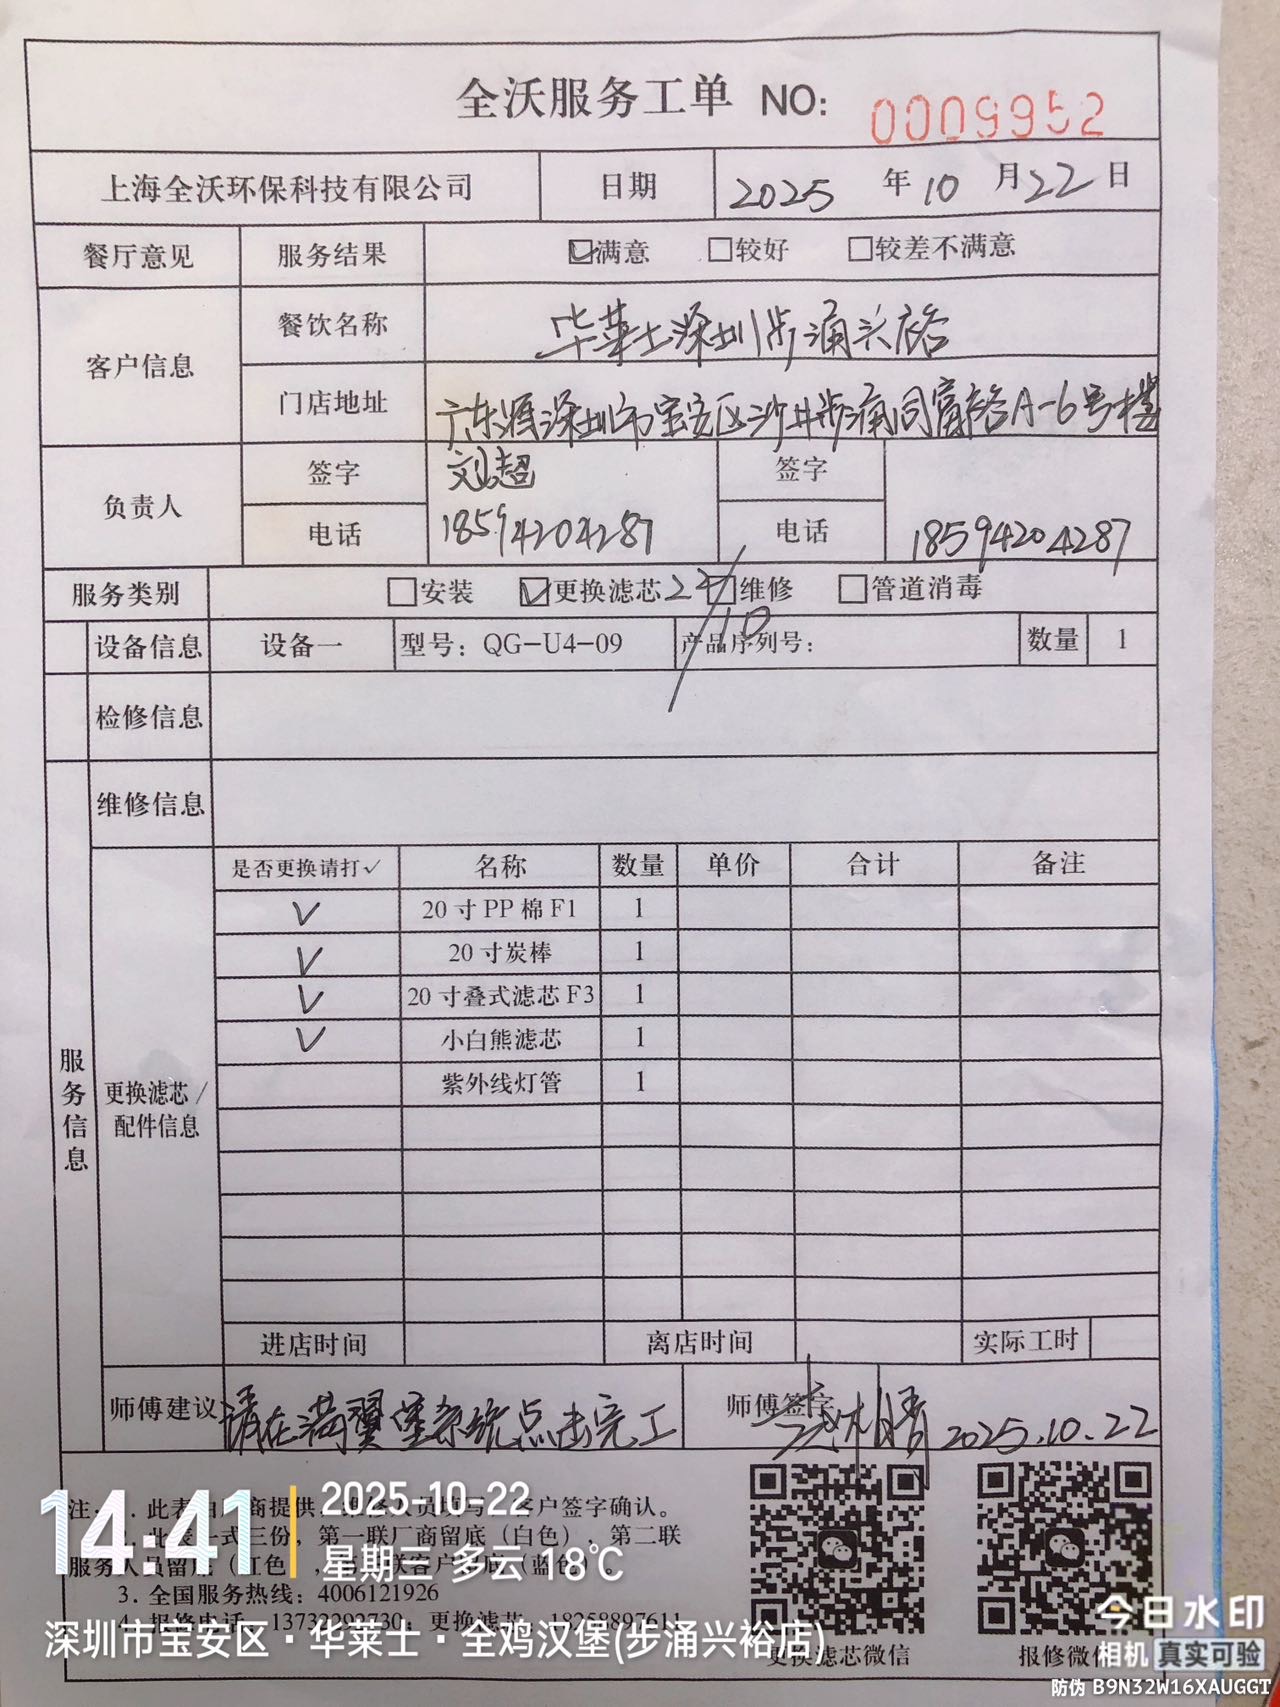 全沃服务工单 NO: 0009952
上海全沃环保科技有限公司 日期 2025 年 10 月 22 日
餐厅意见 服务结果 ☑满意 □较好 □较差不满意
客户信息 餐饮名称 华莱士深圳步涌兴裕
门店地址 广东源深圳市宝安区沙井步涌同富裕A-6号楼
负责人 签字 刘超 签字
电话 18594204287 电话 18594204287
服务类别 □安装 ☑更换滤芯 22/10 □维修 □管道消毒
设备信息 设备一 型号：QG-U4-09 产品序列号： 数量 1
检修信息
维修信息
服务信息
更换滤芯/配件信息
是否更换请打✓ 名称 数量 单价 合计 备注
✓ 20寸PP棉F1 1
✓ 20寸炭棒 1
✓ 20寸叠式滤芯F3 1
✓ 小白熊滤芯 1
紫外线灯管 1
进店时间 离店时间 实际工时
师傅建议 请在满翼堡系统点击完工 师傅签字 2025.10.22
注：1. 此表由 商提供 客户签字确认。
2. 此表一式三份，第一联厂商留底（白色），第二联
服务人员留底（红色），联客户 底（蓝色）。
3. 全国服务热线：4006121926
4. 报修电话 13732292730；更换滤芯 18258897611
更换滤芯微信 报修微信
14:41
2025-10-22
星期三 多云 18℃
深圳市宝安区·华莱士·全鸡汉堡(步涌兴裕店)
今日水印
相机 真实可验
防伪 B9N32W16XAUGGT